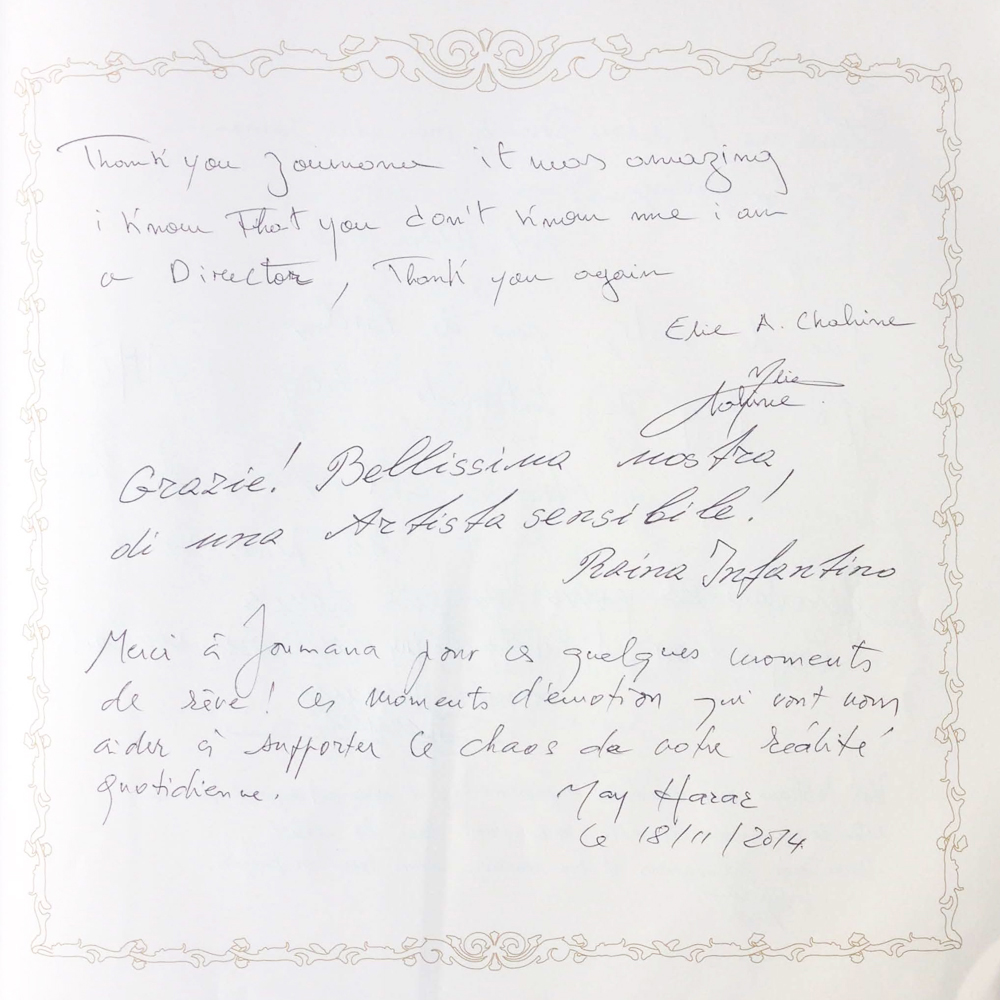 Thank you Joumana it was amazing
i know that you don't know me i am
a Director, Thank you again
Elie A. Chahine
Elie
Chahine
Grazie! Bellissima mostra,
di una Artista sensibile!
Raina Infantino
Merci à Joumana pour ces quelques moments
de rêve! Ces moments d'émotion qui vont nous
aider à supporter le chaos de notre réalité
quotidienne.
May Haraz
Le 18/11/2014